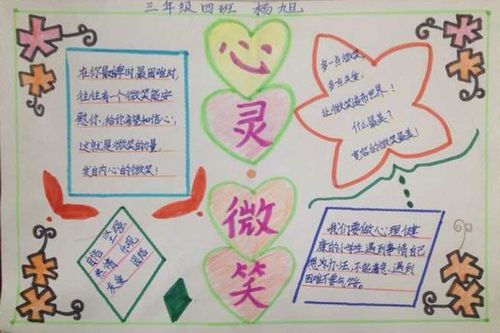 三年级四班 杨旭
心
灵
微
笑
在你最艰时最困难时,
往往有一个微笑能安
慰你,给你希望和信心,
这就是微笑的力量,
发自内心的微笑!
多一点微笑,
多点兰爱,
让微笑遍布世界!
什么最美?
宽容的微笑最美!
自信 坚强
热情 乐观
友爱 团结
我们要做心理健
康的小学生遇到事情自己
想办法,不能着急,遇到
困难不要气馁。